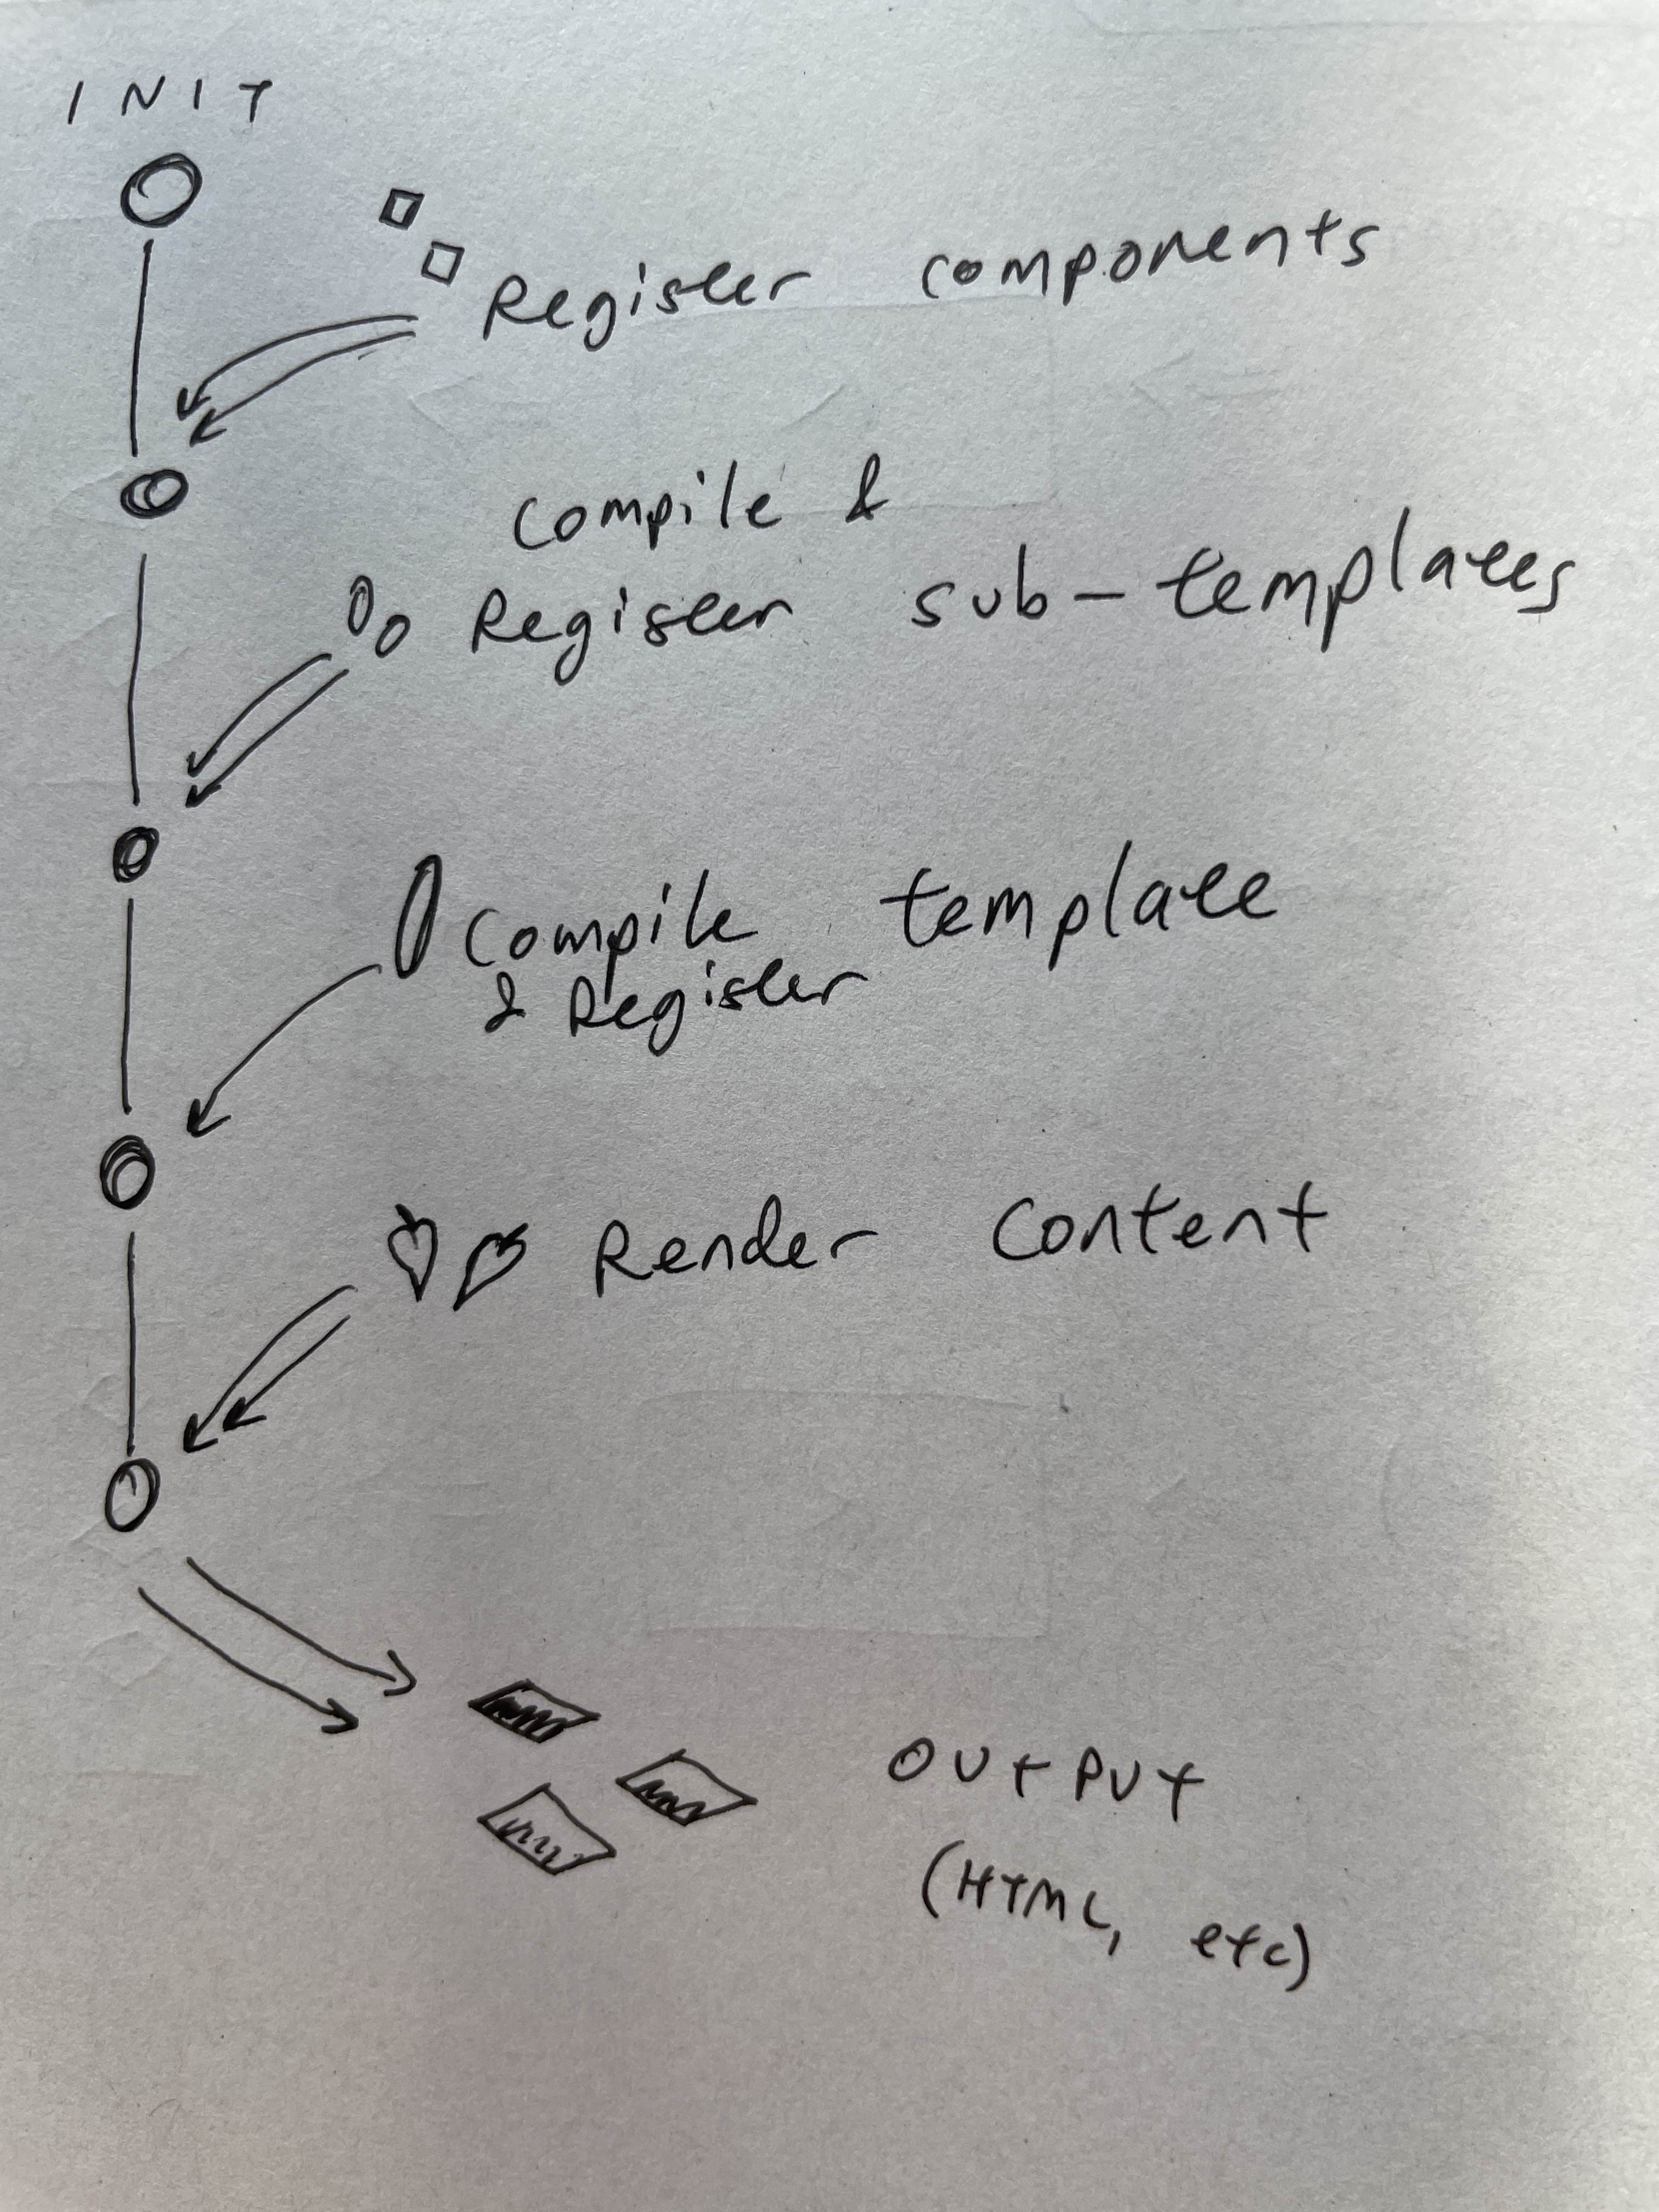 INIT
Register components
Compile &
Register sub-templates
Compile template
& Register
Render Content
OUTPUT
(HTML, etc)